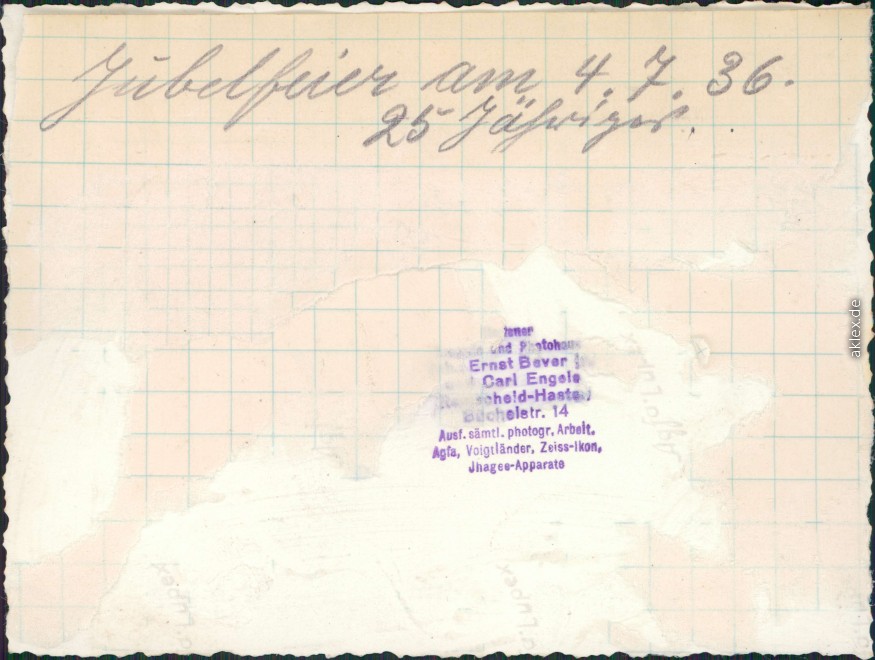 Jubelfeier am 4. 7. 36.
25 Jähriges.
und Photohaus
Ernst Bever
Carl Engels
scheid-Hasten)
Büchelstr. 14
Ausf. sämtl. photogr. Arbeit.
Agfa, Voigtländer, Zeiss-Ikon,
Jhagee-Apparate
Agfa Lupex
a Lupex
a Lupex
aklex.de